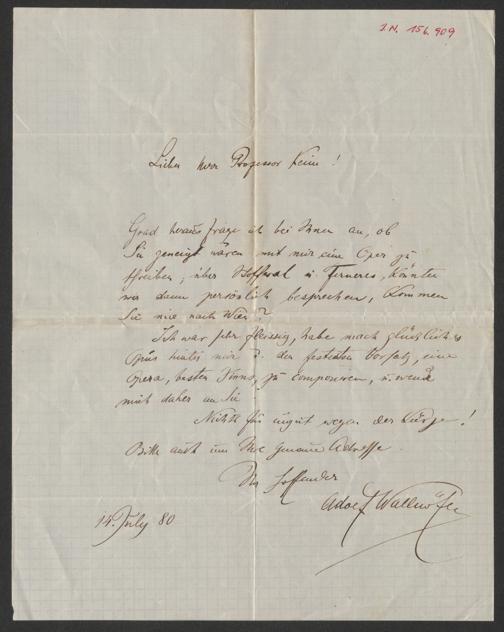 I.N. 156.909
Lieber Herr Professor Keim!
Grad heraus frage ich bei Ihnen an, ob
Sie geneigt wären mit mir eine Oper zu
schreiben; über Stoffwal u. Ferneres, könnten
wir dann persönlich besprechen, kommen
Sie nie nach Wien?
Ich war sehr fleissig, habe manch glückliches
Opus hinter mir u. den festesten Vorsatz, eine
Opera, besten Sinns, zu componiren, u. wende
mich daher an Sie
Nichts für ungut wegen der Kürze!
Bitte auch um Ihre genaue Adresse
Ihr hoffender
Adolf Wallnöfer
14. July 80